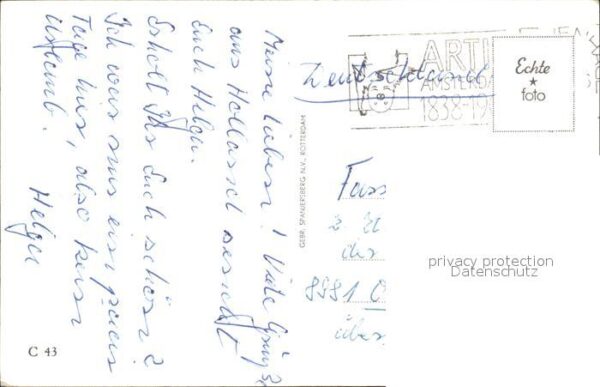 Meine Lieben! Viele Grüße
aus Holland sendet
Euch Helga.
Erholt Ihr Euch schön?
Ich war nur ein paar
Tage hier, also kein
Urlaub.
Helga
C 43
GEBR. SPANJERSBERG N.V., ROTTERDAM
ARTI
AMSTERDA
1838-19
Deutschland
Echte
foto
Fass
der
8881
über
privacy protection
Datenschutz